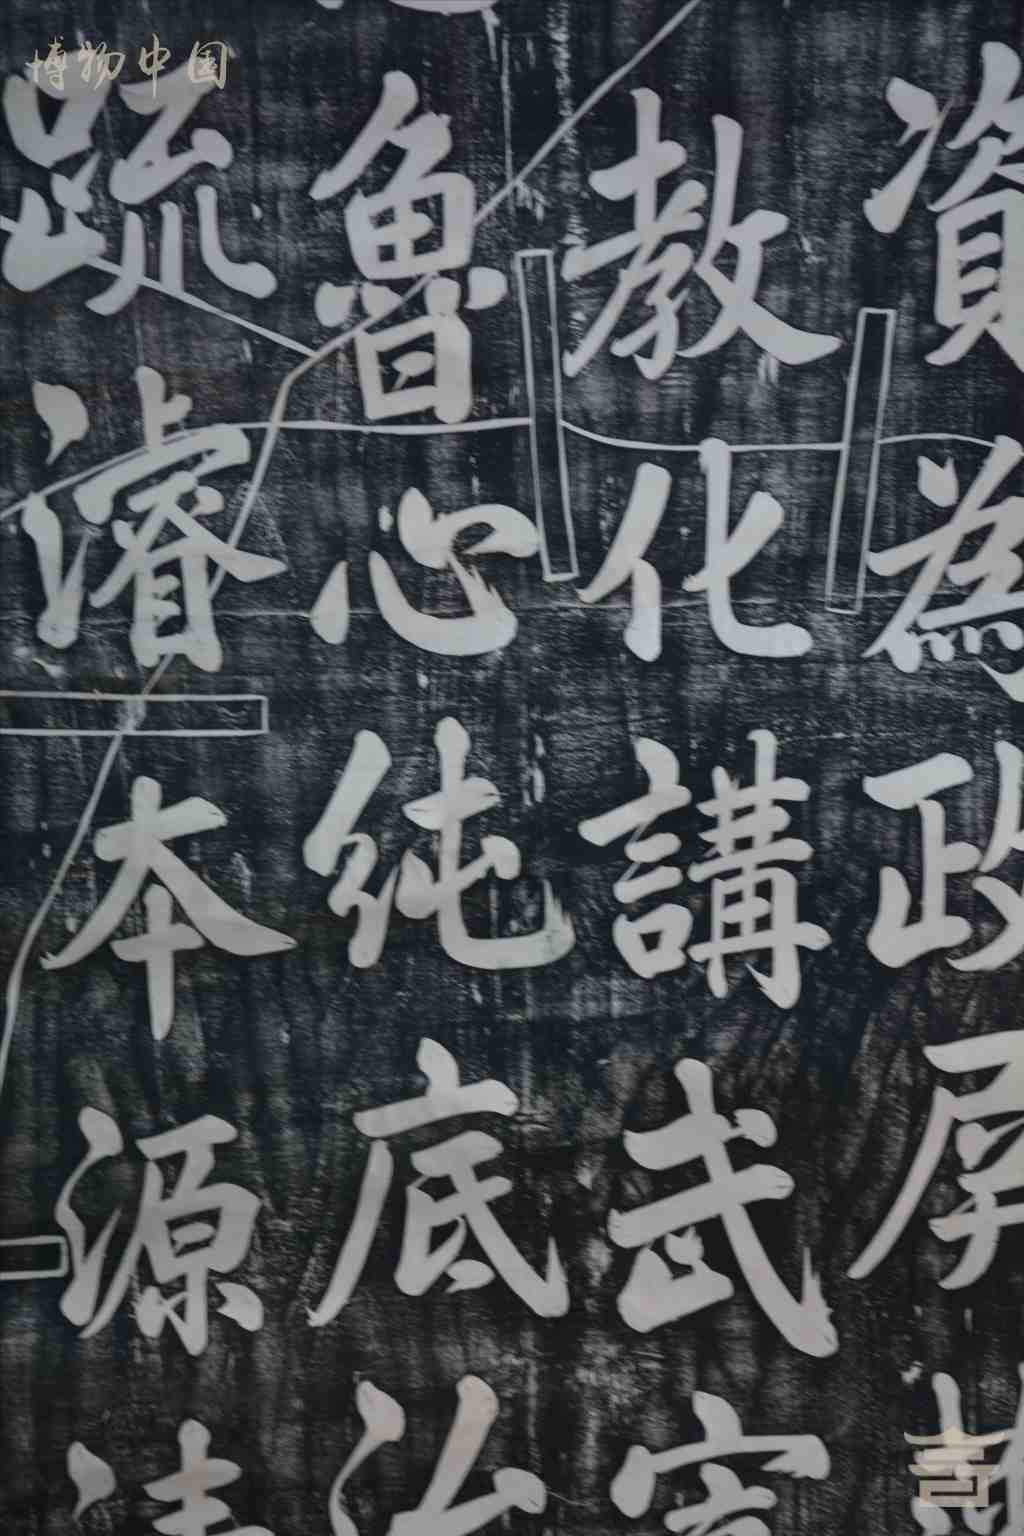 博物中国
資為政屏
教化講武
魯心純底治
疏濬本源清